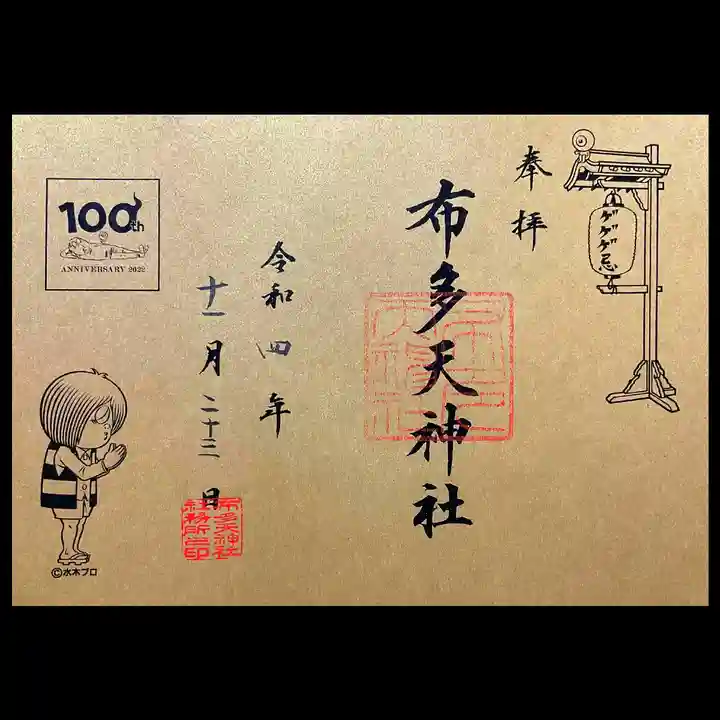 奉拝
ゲゲゲ忌
布多天神社
令和四年
十一月二十三日
布多天神社
社務所之印
100th
ANNIVERSARY 2022
©水木プロ